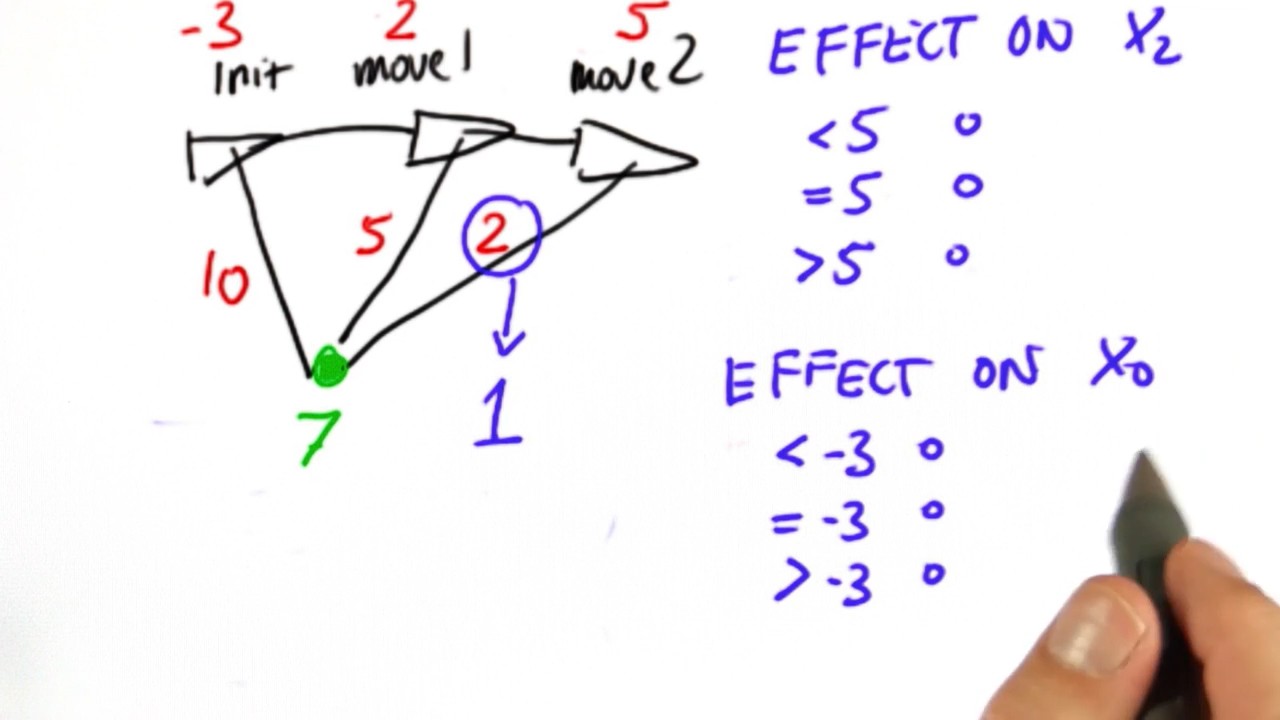 -3 2 5
Init move1 move2
10 5 2
1
7
EFFECT ON X2
<5
=5
>5
EFFECT ON X0
<-3
=-3
>-3